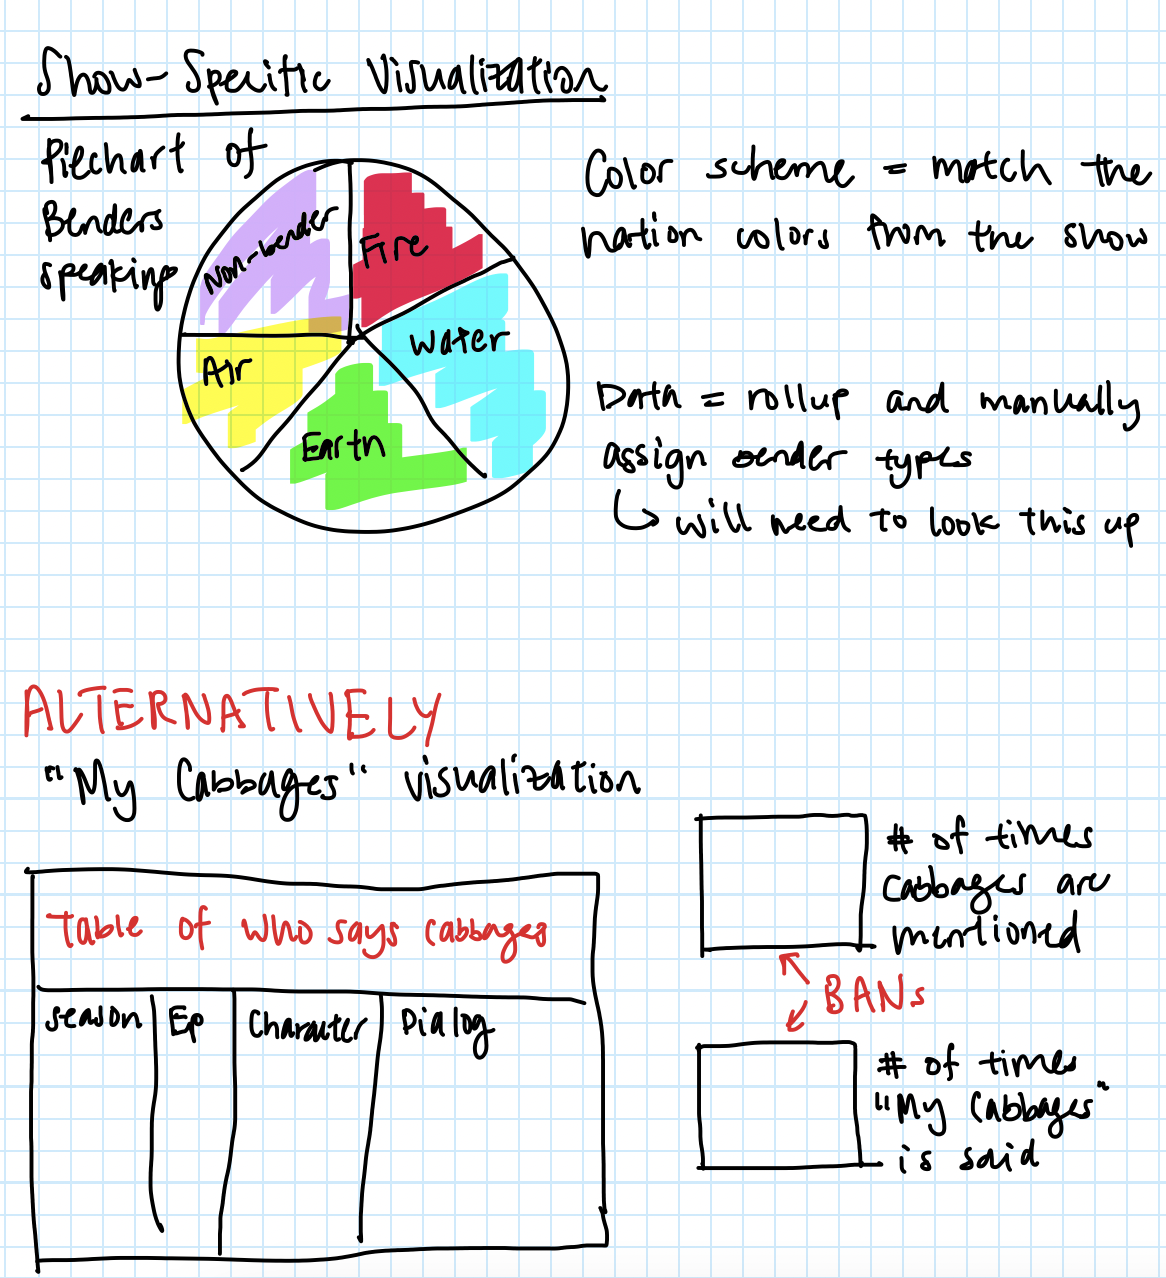 Show-Specific Visualization
Piechart of
Benders
speaking
Non-bender
Fire
Water
Air
Earth
Color scheme = match the
nation colors from the show
Data = rollup and manually
assign bender types
↳ will need to look this up
ALTERNATIVELY
"My Cabbages" visualization
Table of who says cabbages
season
Ep
Character
Dialog
# of times
cabbages are
mentioned
BANs
# of times
"My Cabbages"
is said